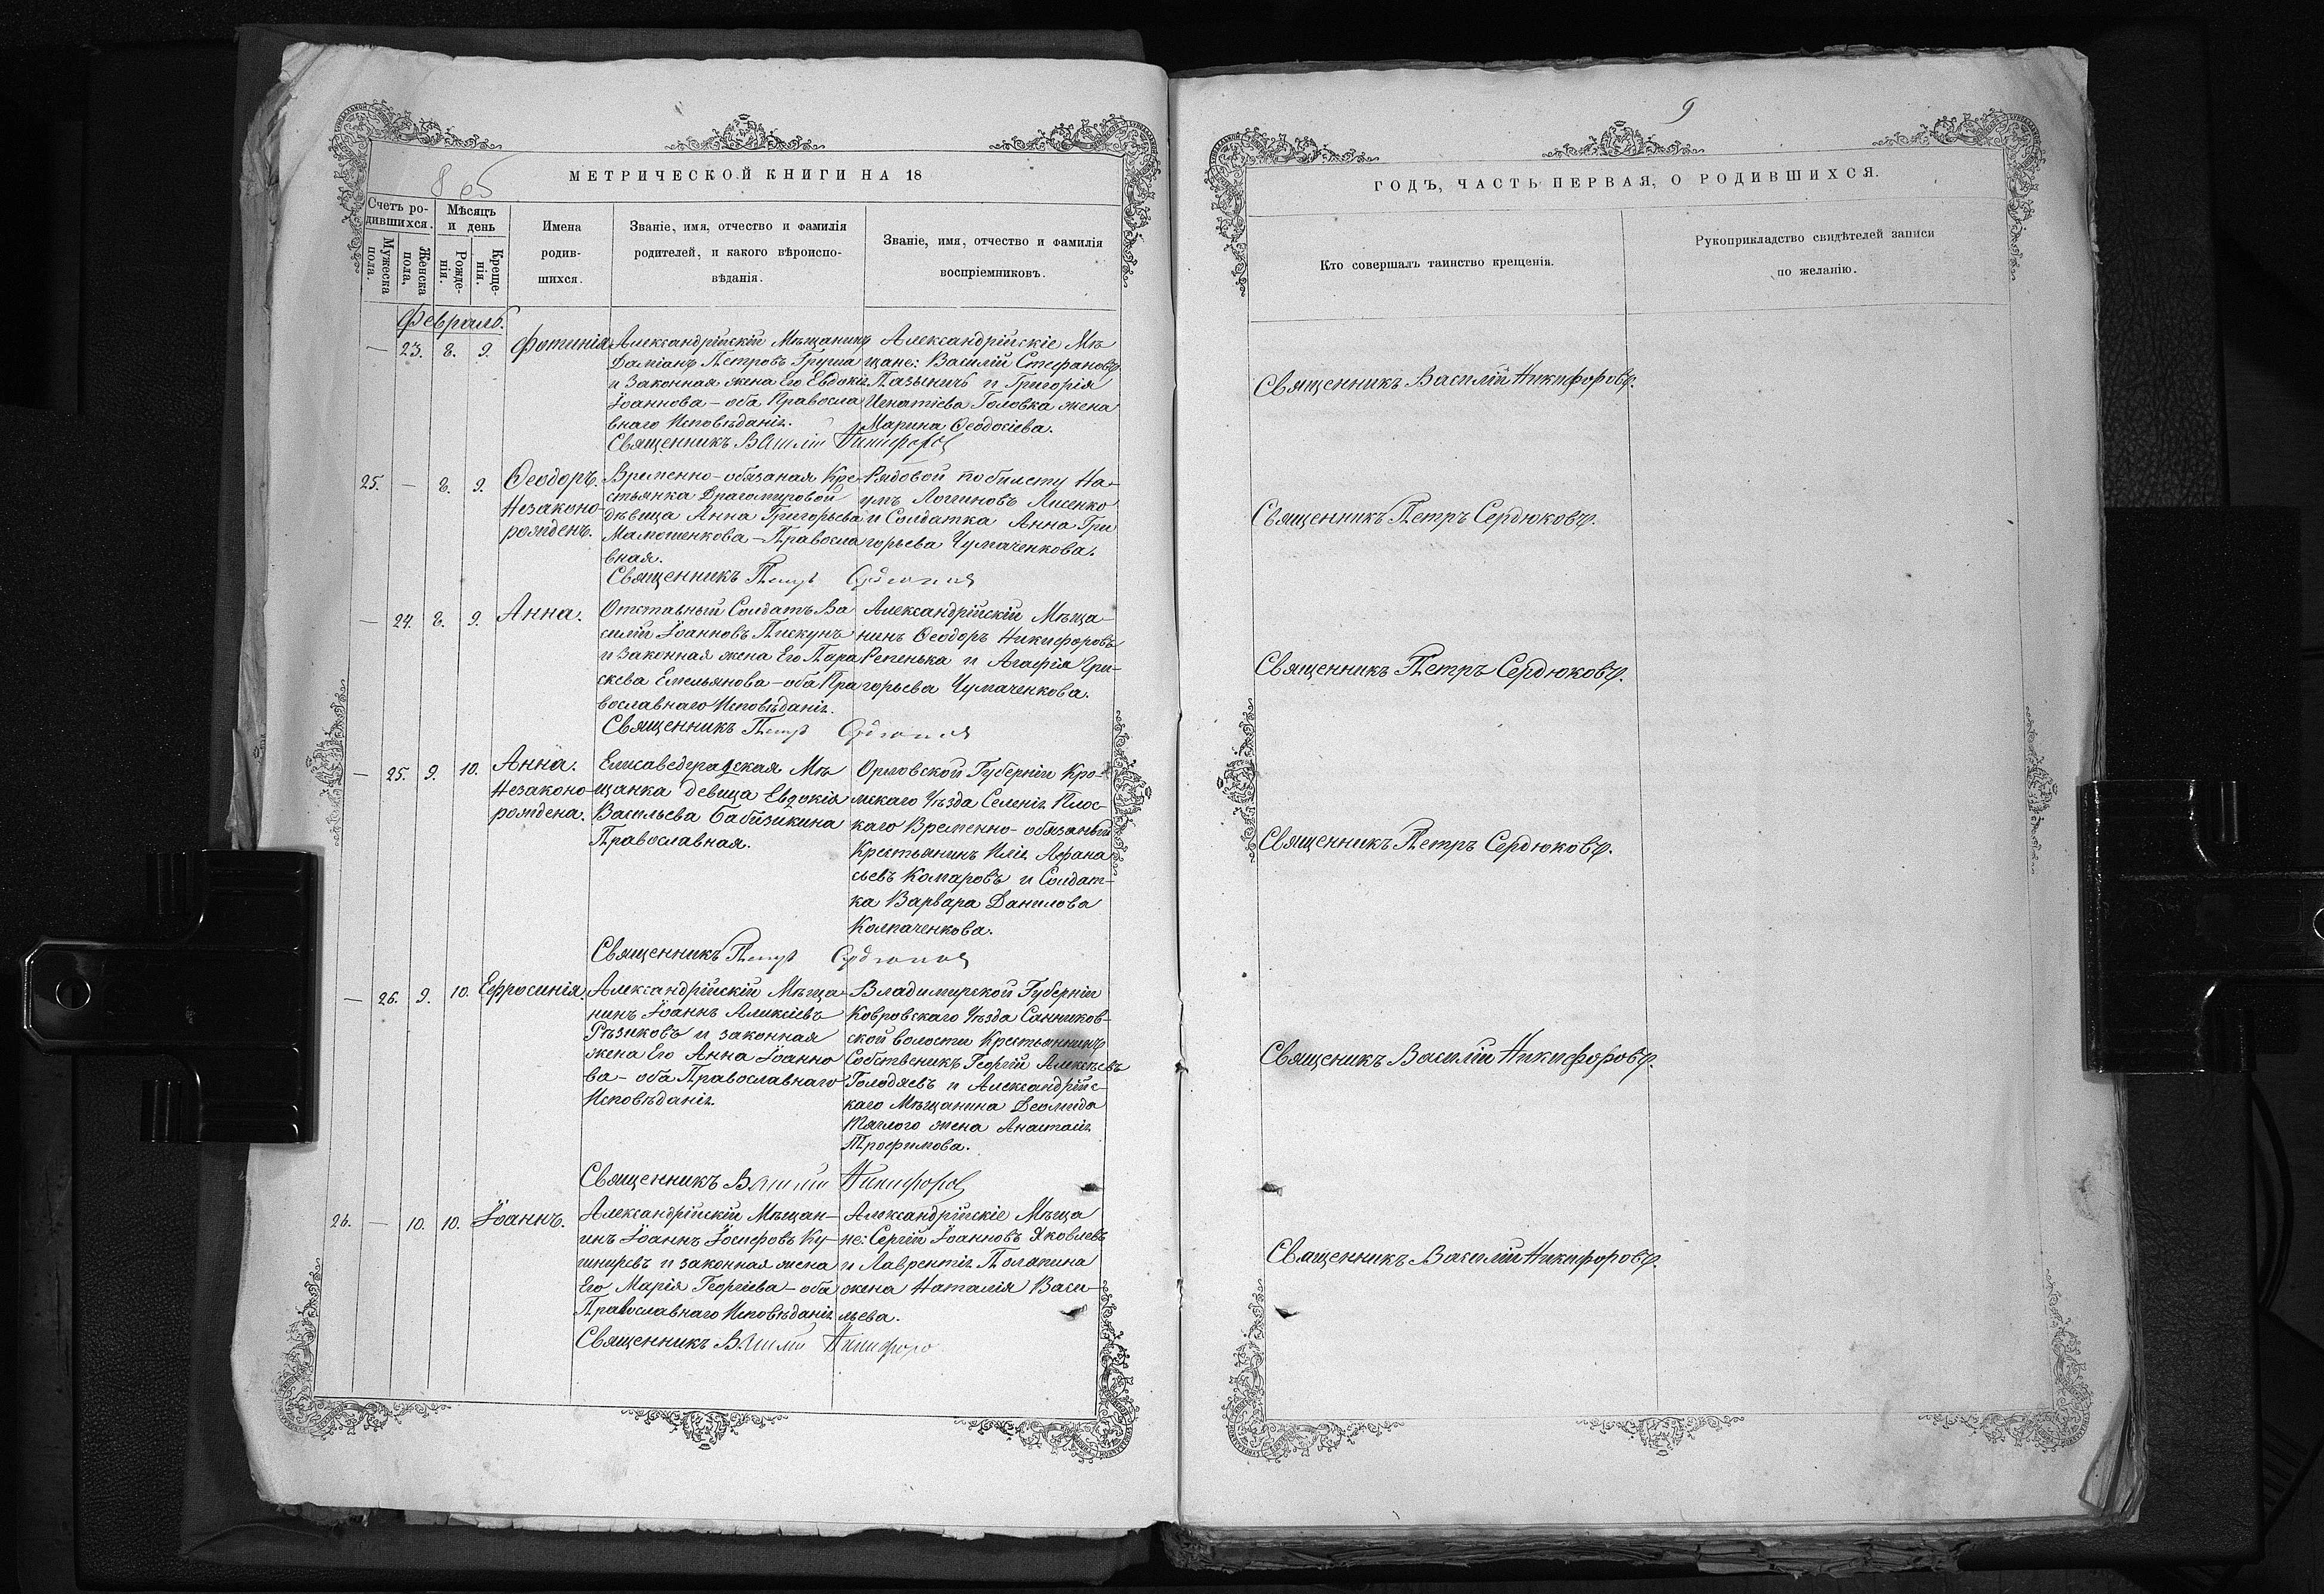 8 об
МЕТРИЧЕСКОЙ КНИГИ НА 18
Счетъ ро-
дившихся.
Мужеска
пола.
Женска
пола,
Мѣсяцъ
и день
Рожде-
нія.
Креще-
нія.
Имена
родив-
шихся.
Званіе, имя, отчество и фамилія
родителей, и какого вѣроиспо-
вѣданія.
Званіе, имя, отчество и фамилія
воспріемниковъ.
Февраль.
— 23. 8. 9. Фотинія
Александрійскій Мѣщанинъ
Даміанъ Петровъ Груша
и Законная жена Его Евдокія
Іоаннова – оба Правосла
внаго Исповѣданія.
Александрійскіе Мѣ
щане: Василій Стефановъ
Пазыничъ и Григорія
Игнатіева Головка жена
Марина Ѳеодосіева.
Священникъ Василій Никифоровъ
25. — 8. 9. Ѳеодоръ.
Незаконо-
рожденъ.
Временно-обязаная Кре-
стьянка Драгомировой
дѣвица Анна Григорьева
Мамошенкова – Правосла
вная.
Рядовой по билету На-
умъ Логгиновъ Лисенко
и Солдатка Анна Гри
горьева Чумаченкова.
Священникъ Петръ Сердюковъ
— 24. 8. 9. Анна.
Отставный Солдатъ Ва
силій Іоанновъ Пискунъ
и Законная жена Его Пара
скева Емельянова – оба Пра
вославнаго Исповѣданія.
Александрійскій Мѣща
нинъ Ѳеодоръ Никифоровъ
Репенька и Агафія Гри-
горьева Чумаченкова.
Священникъ Петръ Сердюковъ
— 25. 9. 10. Анна.
Незаконо-
рождена.
Елисаведградская Мѣ
щанка девица Евдокія
Васильева Бабизикина
Православная.
Орловской Губерніи Кро-
мскаго Уѣзда Селенія Плос-
каго Временно-обязаный
Крестьянинъ Илія Афана
сьевъ Комаровъ и Солдат-
ка Варвара Данилова
Колпаченкова.
Священникъ Петръ Сердюковъ
— 26. 9. 10. Ефросинія.
Александрійскій Мѣща
нинъ Іоаннъ Аликсіевъ
Рѣзниковъ и законная
жена Его Анна Іоанно
ва – оба Православнаго
Исповѣданія.
Владимирской Губерніи
Ковровскаго Уѣзда Санников-
ской волости Крестьянинъ
Собственикъ Георгій Аликсѣевъ
Голодяевъ и Александрійс-
каго Мѣщанина Деомида
Тяглого жена Анастасія
Трофимова.
Священникъ Василій Никифоровъ
26. — 10. 10. Іоаннъ.
Александрійскій Мѣщан-
инъ Іоаннъ Іосифовъ Ку-
шниревъ и законная жена
Его Марія Георгіева – оба
Православнаго Исповѣданія
Александрійскіе Мѣща
не: Сергій Іоанновъ Яковлевъ
и Лаврентія Полапина
жена Наталія Васи-
льева.
Священникъ Василій Никифоро
9
ГОДЪ, ЧАСТЬ ПЕРВАЯ, О РОДИВШИХСЯ.
Кто совершалъ таинство крещенія.
Рукоприкладство свидѣтелей записи
по желанію.
Священникъ Василій Никифоровъ.
Священникъ Петръ Сердюковъ.
Священникъ Петръ Сердюковъ.
Священникъ Петръ Сердюковъ.
Священикъ Василій Никифоровъ.
Священникъ Василій Никифоровъ.